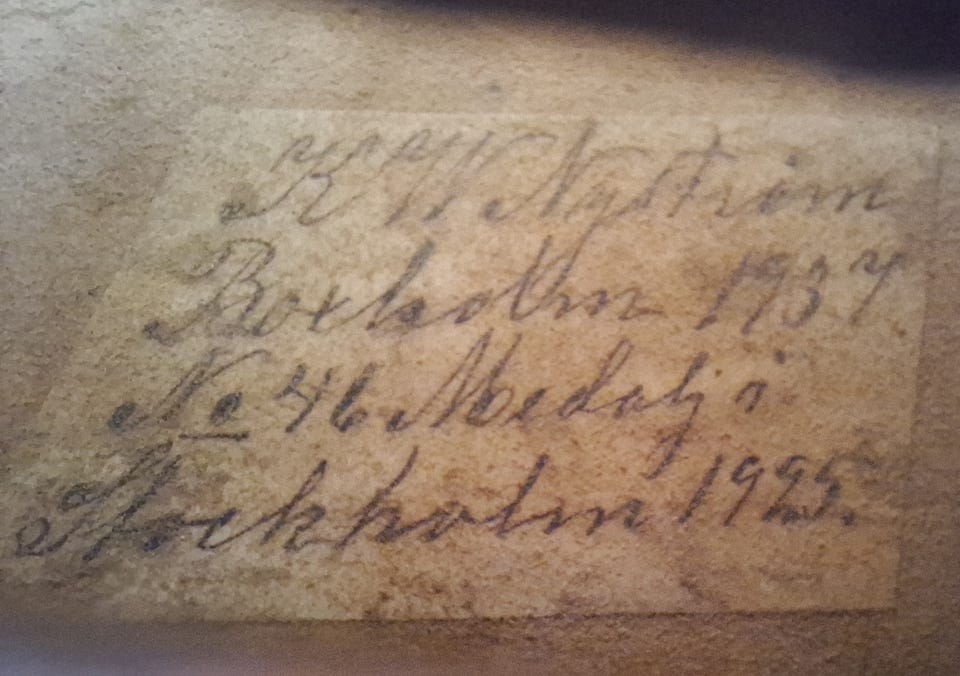 K W Nyström
Boxholm 1937
No 46 Medalj i
Stockholm 1925.